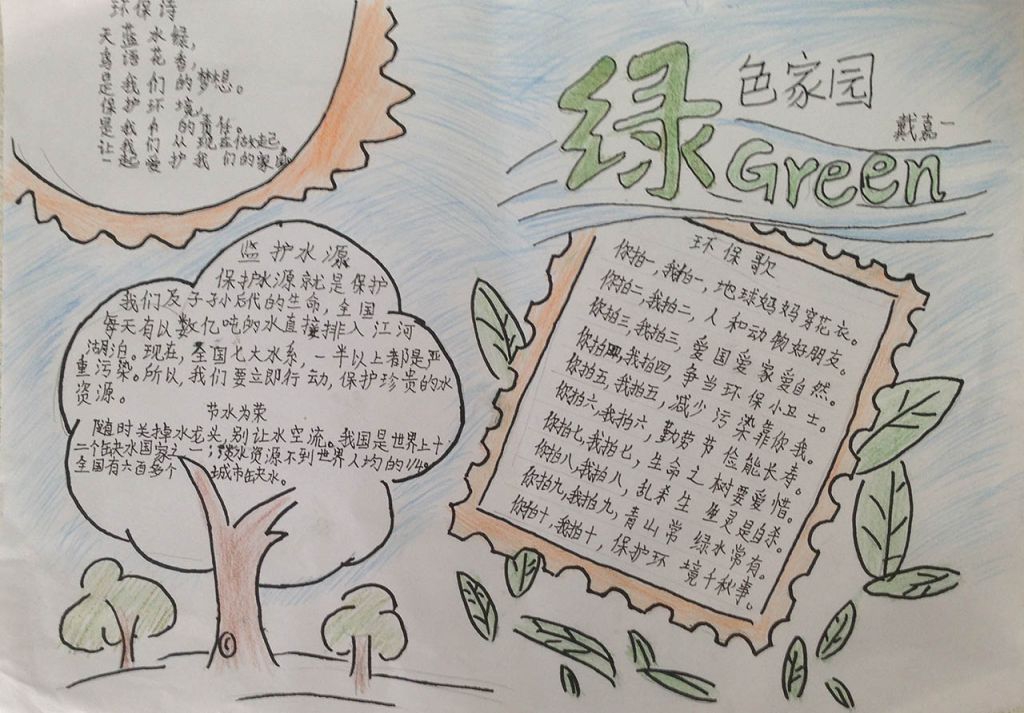 环保诗
天蓝水绿，
鸟语花香，
是我们的梦想。
保护环境，
是我们的责任。
让我们从现在做起，
一起爱护我们的家园
绿
色家园
戴嘉一
Green
监护水源
保护水源就是保护
我们及子子孙后代的生命，全国
每天有以数亿吨的水直接排入江河
湖泊。现在，全国七大水系，一半以上都是严
重污染。所以，我们要立即行动，保护珍贵的水
资源。
节水为荣
随时关掉水龙头，别让水空流。我国是世界上十
二个缺水国家之一；淡水资源不到世界人均的1/4。
全国有六百多个城市缺水。
环保歌
你拍一，我拍一，地球妈妈穿花衣。
你拍二，我拍二，人和动物好朋友。
你拍三，我拍三，爱国爱家爱自然。
你拍四，我拍四，争当环保小卫士。
你拍五，我拍五，减少污染靠你我。
你拍六，我拍六，勤劳节俭能长寿。
你拍七，我拍七，生命之树要爱惜。
你拍八，我拍八，乱弄生灵是自杀。
你拍九，我拍九，青山常绿水常有。
你拍十，我拍十，保护环境千秋事。